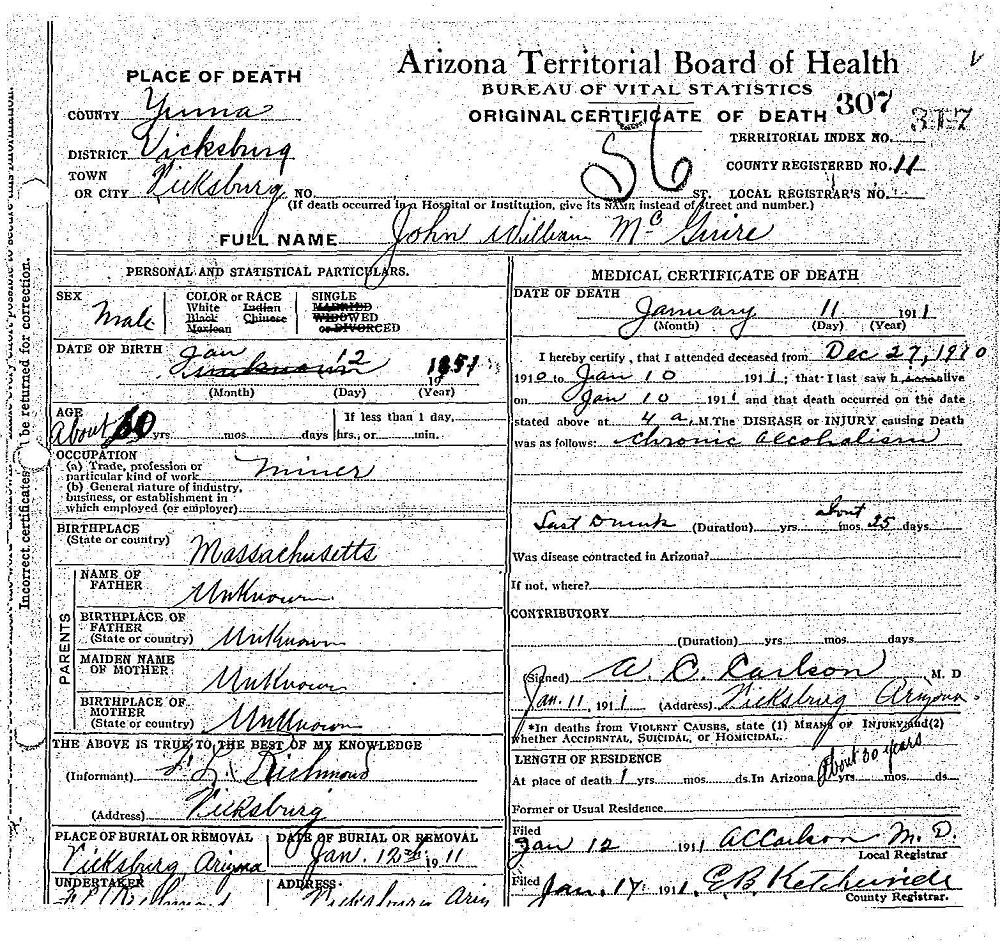 Arizona Territorial Board of Health
BUREAU OF VITAL STATISTICS
ORIGINAL CERTIFICATE OF DEATH 307 317
56
TERRITORIAL INDEX NO.
COUNTY REGISTERED NO. 11
LOCAL REGISTRAR'S NO.
PLACE OF DEATH
COUNTY Yuma
DISTRICT Vicksburg
TOWN OR CITY Vicksburg NO. ST.
(If death occurred in a Hospital or Institution, give its NAME instead of street and number.)
FULL NAME John William McGuire
Incorrect certificates will be returned for correction.
PERSONAL AND STATISTICAL PARTICULARS.
SEX Male
COLOR or RACE
White Indian
Black Chinese
Mexican
SINGLE
MARRIED
WIDOWED
or DIVORCED
DATE OF BIRTH Jan 12 1851
(Month) (Day) (Year)
AGE
About 60 yrs. mos. days
If less than 1 day,
hrs., or min.
OCCUPATION
(a) Trade, profession or
particular kind of work Miner
(b) General nature of industry,
business, or establishment in
which employed (or employer)
BIRTHPLACE
(State or country) Massachusetts
PARENTS
NAME OF
FATHER Unknown
BIRTHPLACE OF
FATHER
(State or country) Unknown
MAIDEN NAME
OF MOTHER Unknown
BIRTHPLACE OF
MOTHER
(State or country) Unknown
THE ABOVE IS TRUE TO THE BEST OF MY KNOWLEDGE
(Informant) Richmond
(Address) Vicksburg
PLACE OF BURIAL OR REMOVAL
Vicksburg Arizona
DATE OF BURIAL OR REMOVAL
Jan. 12th 1911
UNDERTAKER
Richmond
ADDRESS
Vicksburg Ariz
MEDICAL CERTIFICATE OF DEATH
DATE OF DEATH
January 11 1911
(Month) (Day) (Year)
I hereby certify, that I attended deceased from Dec 27, 1910
1910 to Jan 10 1911; that I last saw h alive
on Jan 10 1911 and that death occurred on the date
stated above at 4 a. M. The DISEASE or INJURY causing Death
was as follows: Chronic alcoholism
Last Drunk (Duration) yrs. about mos. 25 days
Was disease contracted in Arizona?
If not, where?
CONTRIBUTORY
(Duration) yrs. mos. days
(Signed) A. C. Carlson M. D
Jan. 11, 1911 (Address) Vicksburg Arizona
*In deaths from VIOLENT CAUSES, state (1) MEANS OF INJURY, and (2)
whether ACCIDENTAL, SUICIDAL, or HOMICIDAL.
LENGTH OF RESIDENCE
At place of death 1 yrs. mos. ds. In Arizona About 30 years yrs. mos. ds.
Former or Usual Residence
Filed
Jan 12 1911 ACCarlson M. D.
Local Registrar
Filed Jan. 17 1911 E.B.
County Registrar.